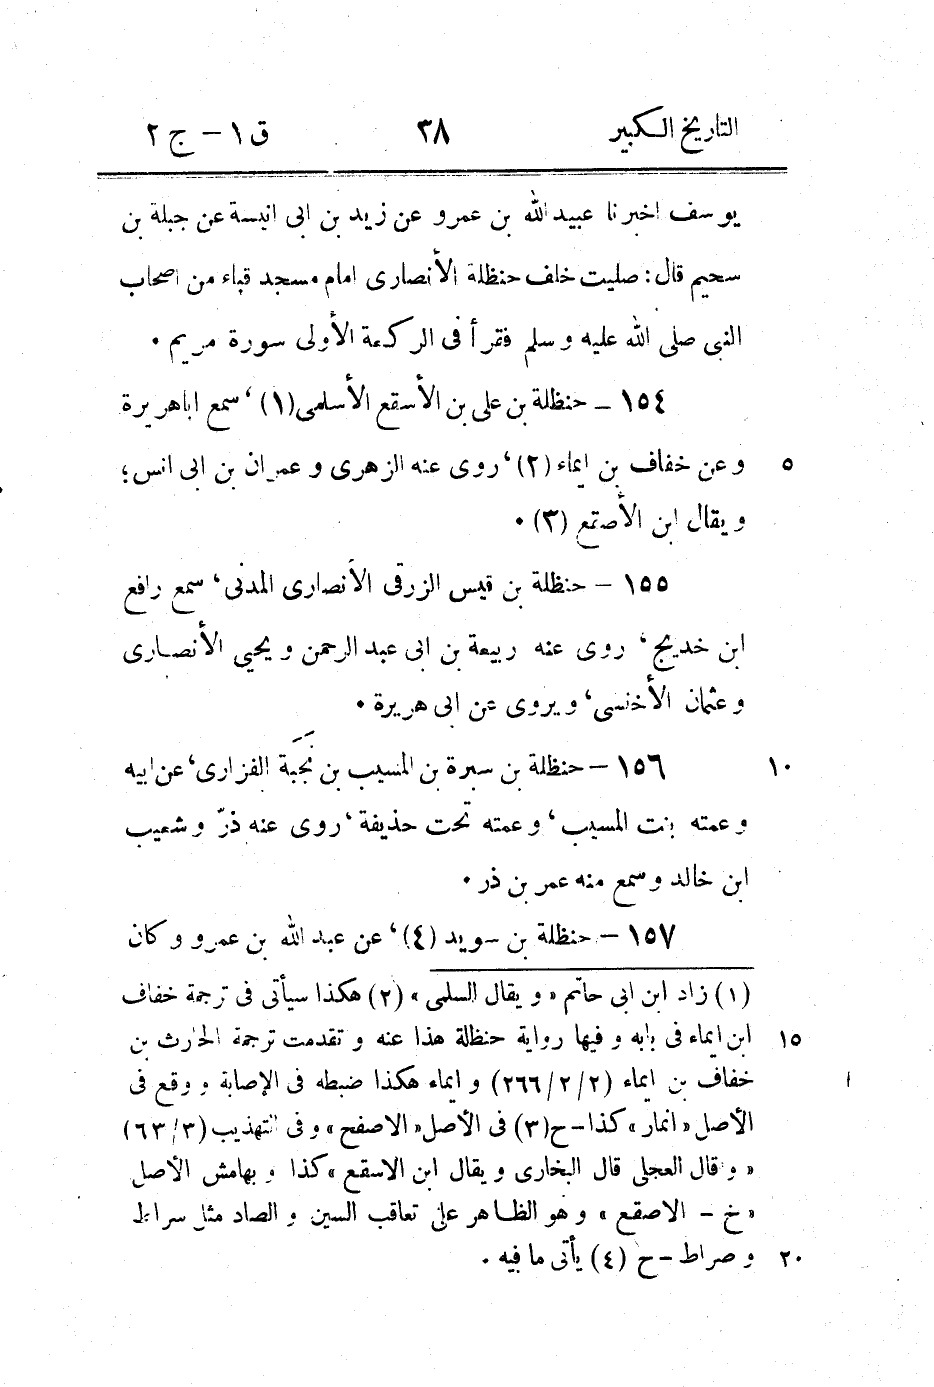 التاريخ الكبير ٣٨ ق ١ – ج ٢
يوسف اخبرنا عبيد الله بن عمرو عن زيد بن ابى انيسة عن جبلة بن
سحيم قال: صليت خلف حنظلة الأنصارى امام مسجد قباء من اصحاب
النبى صلى الله عليه وسلم فقرأ فى الركعة الأولى سورة مريم ٠
١٥٤ – حنظلة بن على بن الأسقع الأسلمى (١)، سمع اباهريرة
وعن خفاف بن ايماء (٢)، روى عنه الزهرى وعمران بن ابى انس؛ ٥
ويقال ابن الأصقع (٣) ٠
١٥٥ – حنظلة بن قيس الزرقى الأنصارى المدنى، سمع رافع
ابن خديج، روى عنه ربيعة بن ابى عبد الرحمن ويحيى الأنصارى
وعثمان الأخنسى، ويروى عن ابى هريرة ٠
١٥٦ – حنظلة بن سبرة بن المسيب بن نَجَبَة الفزارى، عن ابيه ١٠
وعمته بنت المسيب، وعمته تحت حذيفة، روى عنه ذرّ وشعيب
ابن خالد وسمع منه عمر بن ذر ٠
١٥٧ – حنظلة بن سويد (٤)، عن عبد الله بن عمرو وكان
(١) زاد ابن ابى حاتم « ويقال السلمى » (٢) هكذا سيأتى فى ترجمة خفاف
ابن ايماء فى بابه وفيها رواية حنظلة هذا عنه وتقدمت ترجمة الحارث بن ١٥
خفاف بن ايماء (٢/٢/٢٦٦) وايماء هكذا ضبطه فى الإصابة ووقع فى
الأصل « انمار » كذا – ح (٣) فى الأصل « الاصفح » وفى التهذيب (٣/٦٣)
« وقال العجلى قال البخارى ويقال ابن الاسقع » كذا وبهامش الأصل
« خ – الاصقع » وهو الظاهر على تعاقب السين والصاد مثل سراط
وصراط – ح (٤) يأتى ما فيه . ٢٠